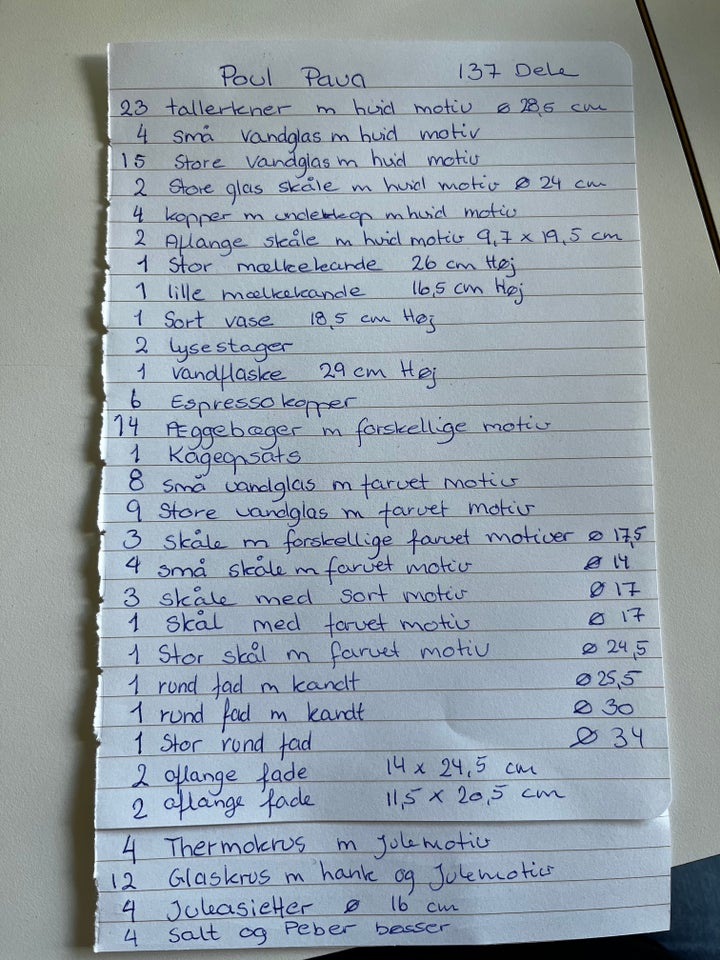 Poul Pava 137 Dele
23 tallerkner m hvid motiv ø 28,5 cm
4 små vandglas m hvid motiv
15 Store vandglas m hvid motiv
2 Store glas skåle m hvid motiv ø 24 cm
4 kopper m underkop m hvid motiv
2 Aflange skåle m hvid motiv 9,7 x 19,5 cm
1 Stor mælkekande 26 cm Høj
1 lille mælkekande 16,5 cm Høj
1 Sort vase 18,5 cm Høj
2 lysestager
1 vandflaske 29 cm Høj
6 Espresso kopper
14 Æggebæger m forskellige motiv
1 Kageopsats
8 små vandglas m farvet motiv
9 Store vandglas m farvet motiv
3 skåle m forskellige farvet motiver ø 17,5
4 små skåle m farvet motiv ø 14
3 skåle med sort motiv ø 17
1 skål med farvet motiv ø 17
1 Stor skål m farvet motiv ø 24,5
1 rund fad m kandt ø 25,5
1 rund fad m kandt ø 30
1 Stor rund fad ø 34
2 aflange fade 14 x 24,5 cm
2 aflange fade 11,5 x 20,5 cm
4 Thermokrus m Julemotiv
12 Glaskrus m hank og Julemotiv
4 Juleasietter ø 16 cm
4 Salt og Peber bøsser